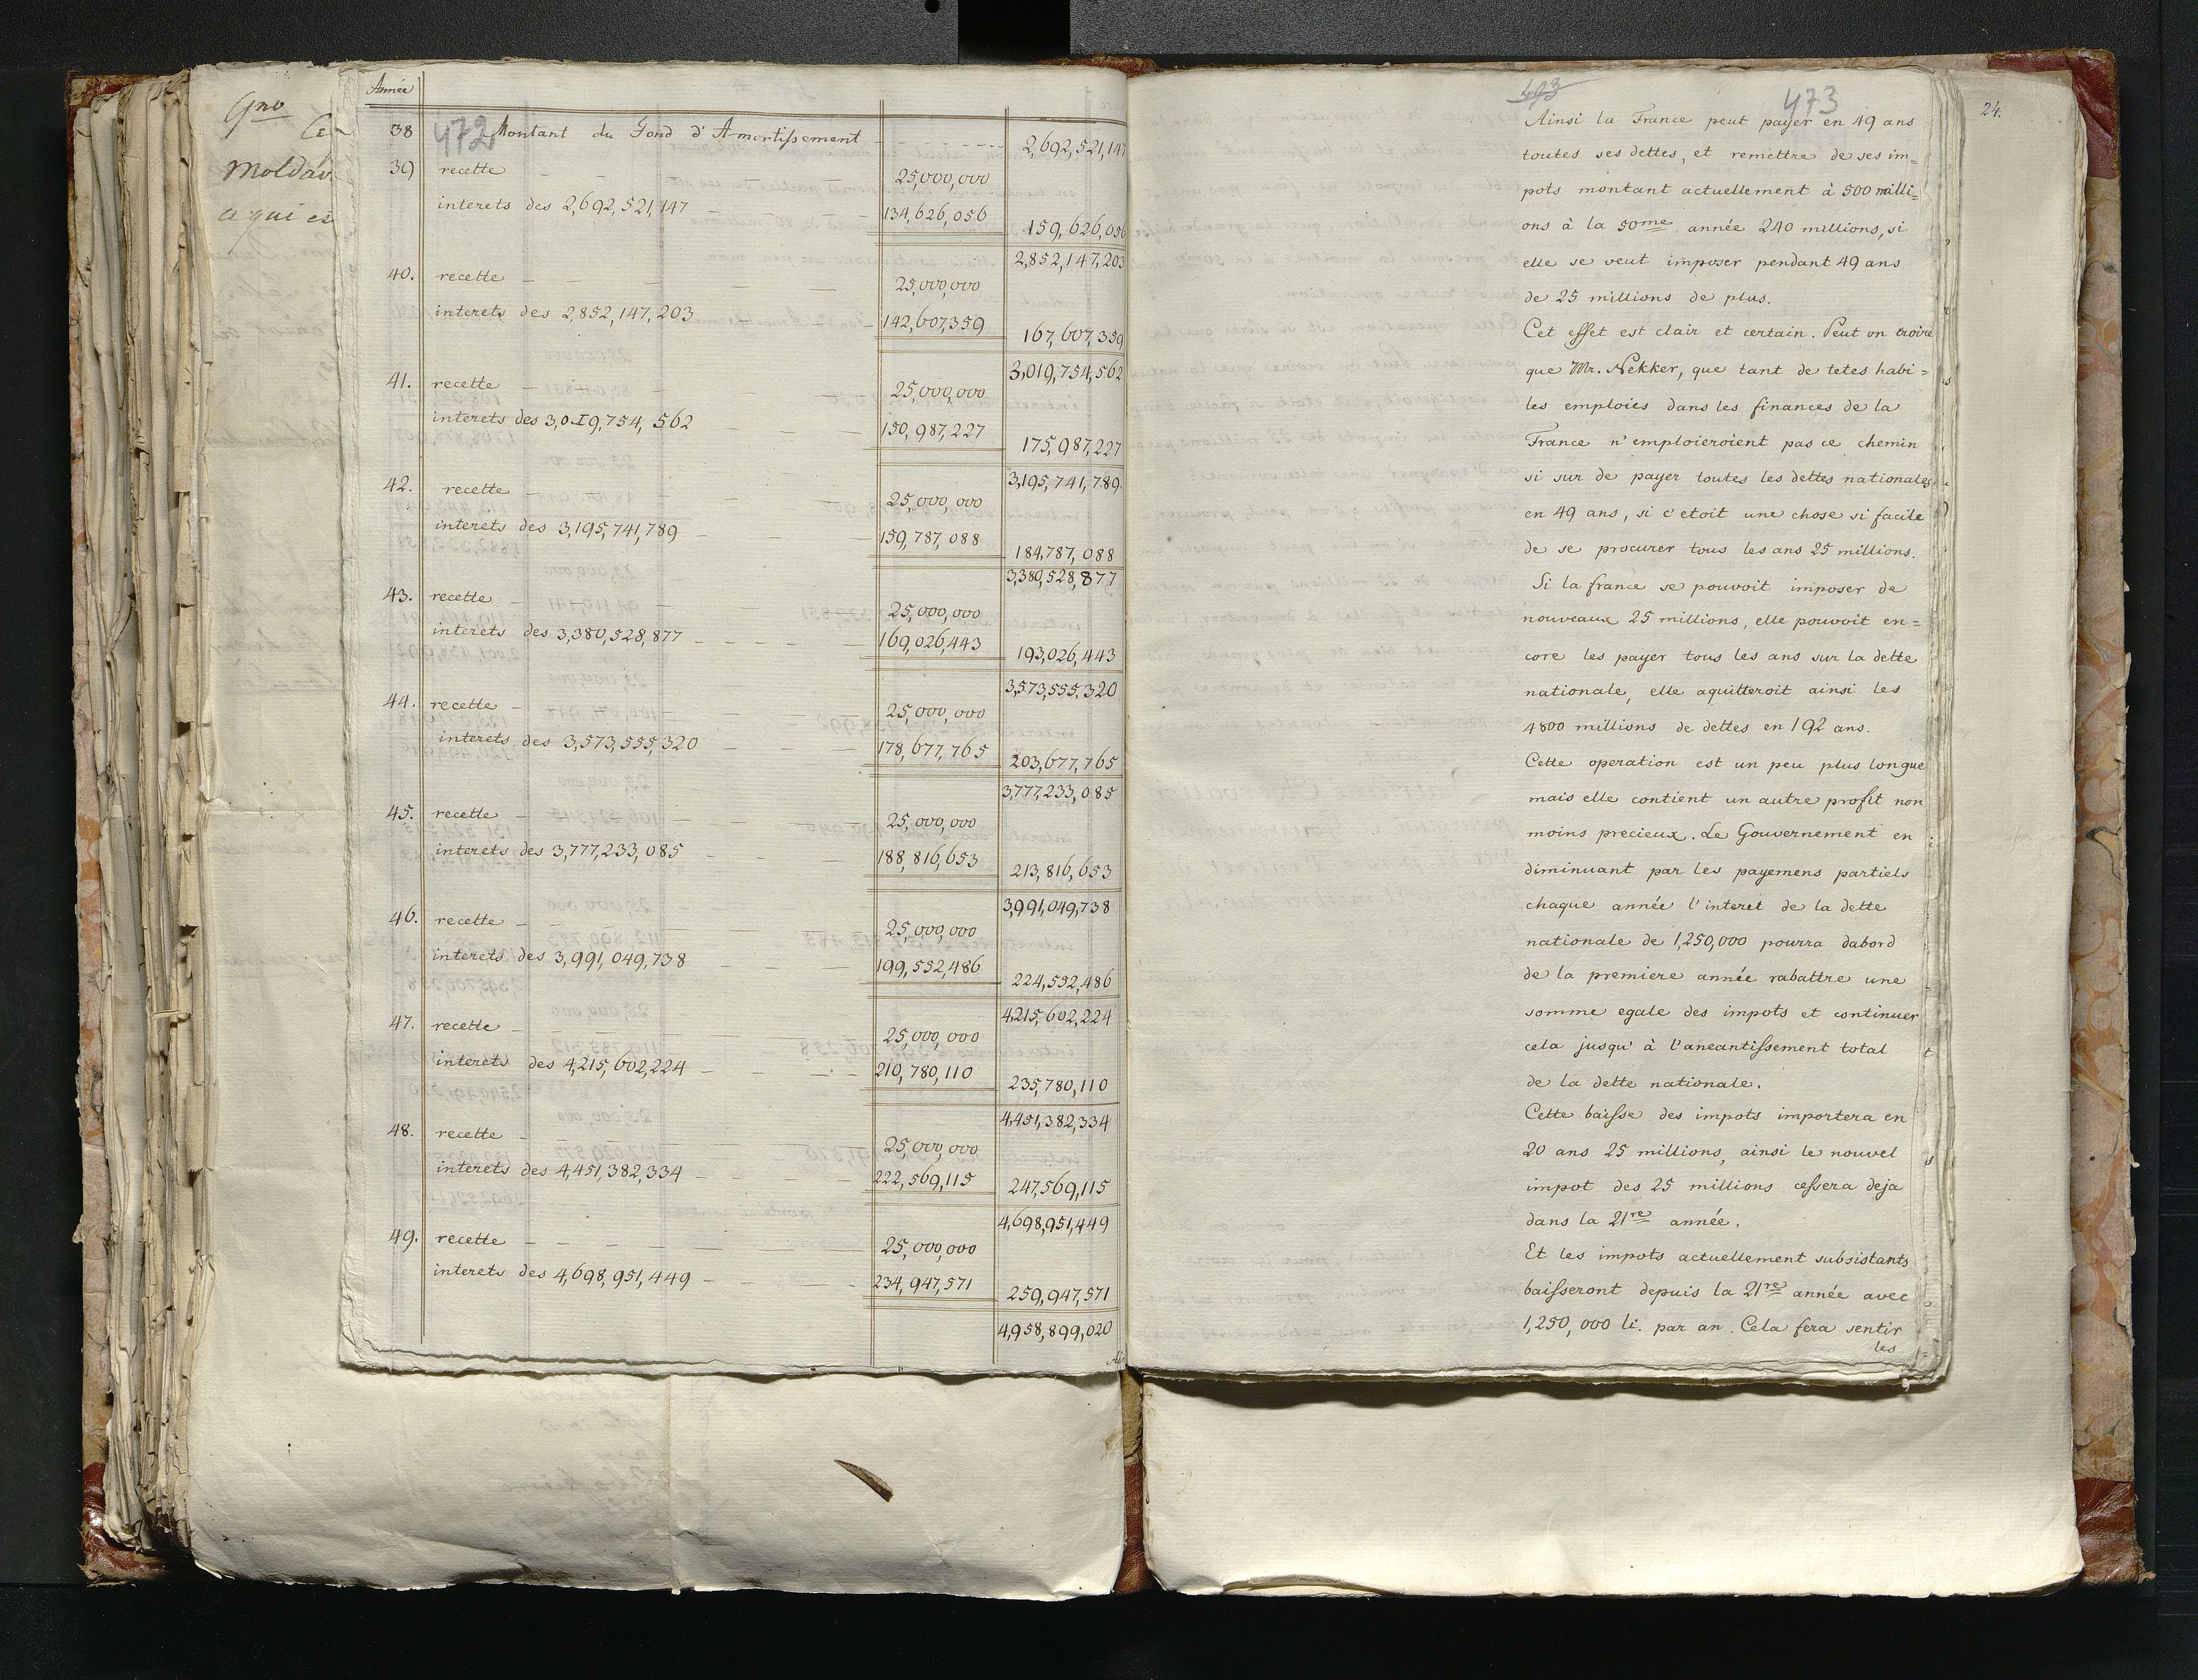 9no
Ce
Moldav
a qui es
Année
472
38 Montant du Fond d'Amortissement - - - - - 2,692,521,147
39 recette - - - - 25,000,000
interets des 2,692,521,147 - - - 134,626,056 159,626,056
2,852,147,203
40. recette - - - - 25,000,000
interets des 2,852,147,203 - - - 142,607,359 167,607,359
3,019,754,562
41. recette - - - - 25,000,000
interets des 3,019,754,562 - - - 150,987,227 175,987,227
3,195,741,789
42. recette - - - - 25,000,000
interets des 3,195,741,789 - - - 159,787,088 184,787,088
3,380,528,877
43. recette - - - - 25,000,000
interets des 3,380,528,877 - - - 169,026,443 193,026,443
3,573,555,320
44. recette - - - - 25,000,000
interets des 3,573,555,320 - - - 178,677,765 203,677,765
3,777,233,085
45. recette - - - - 25,000,000
interets des 3,777,233,085 - - - 188,816,653 213,816,653
3,991,049,738
46. recette - - - - 25,000,000
interets des 3,991,049,738 - - - 199,552,486 224,552,486
4,215,602,224
47. recette - - - - 25,000,000
interets des 4,215,602,224 - - - 210,780,110 235,780,110
4,451,382,334
48. recette - - - - 25,000,000
interets des 4,451,382,334 - - - 222,569,115 247,569,115
4,698,951,449
49. recette - - - - 25,000,000
interets des 4,698,951,449 - - - 234,947,571 259,947,571
4,958,899,020
493 473
24.
Ainsi la France peut payer en 49 ans
toutes ses dettes, et remettre de ses im=
pots montant actuellement à 500 milli=
ons à la 50me année 240 millions, si
elle se veut imposer pendant 49 ans
de 25 millions de plus.
Cet effet est clair et certain. Peut on croire
que Mr. Nekker, que tant de tetes habi=
les emploies dans les finances de la
France n'emploieroient pas ce chemin
si sur de payer toutes les dettes nationales
en 49 ans, si c'etoit une chose si facile
de se procurer tous les ans 25 millions.
Si la france se pouvoit imposer de
nouveaux 25 millions, elle pouvoit en=
core les payer tous les ans sur la dette
nationale, elle aquitteroit ainsi les
4800 millions de dettes en 192 ans.
Cette operation est un peu plus longue
mais elle contient un autre profit non
moins precieux. Le Gouvernement en
diminuant par les payemens partiels
chaque année l'interet de la dette
nationale de 1,250,000 pourra dabord
de la premiere année rabattre une
somme egale des impots et continuer
cela jusqu'à l'aneantissement total
de la dette nationale.
Cette baisse des impots importera en
20 ans 25 millions, ainsi le nouvel
impot des 25 millions cessera deja
dans la 21re année.
Et les impots actuellement subsistants
baisseront depuis la 21re année avec
1,250,000 li. par an. Cela fera sentir
les